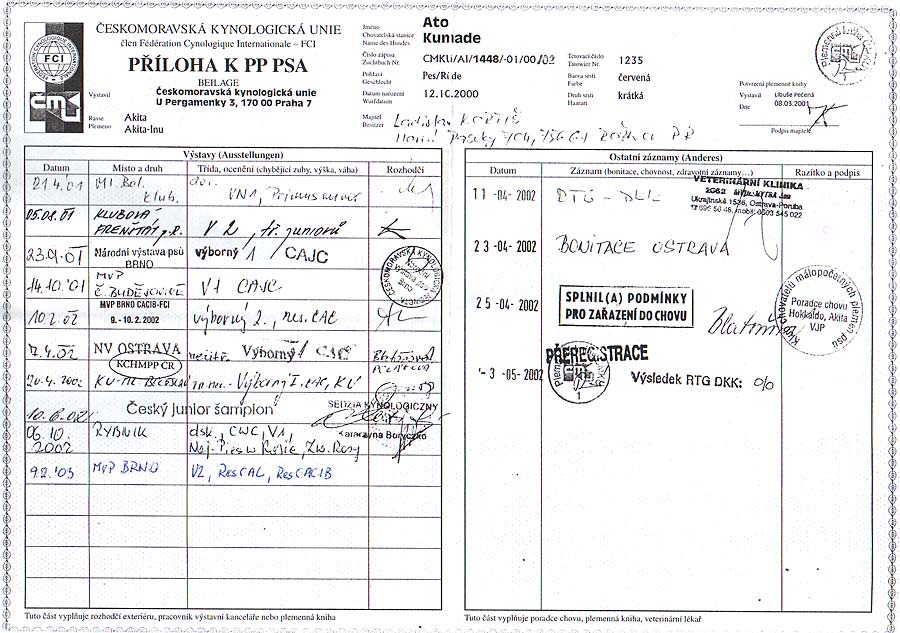 ČESKOMORAVSKÁ KYNOLOGICKÁ UNIE
člen Fédération Cynologique Internationale – FCI
PŘÍLOHA K PP PSA
BEILAGE
Vystavil Českomoravská kynologická unie
U Pergamenky 3, 170 00 Praha 7
Rasse Akita
Plemeno Akita-Inu
FCI
ČMKU
Jméno Ato
Chovatelská stanice Kumade
Name des Hundes
Číslo zápisu CMKU/AI/1448/-01/00/02
Zuchtbuch Nr.
Pohlaví Pes/Rüde
Geschlecht
Datum narození 12.10.2000
Wurfdatum
Majitel Ladislav
Besitzer
Tetovací číslo 1235
Tätowier Nr.
Barva srsti červená
Farbe
Druh srsti krátká
Haarart
Potvrzení plemenné knihy
Vystavil Libuše Pečená
Dne 08.03.2001
Podpis majitele
Výstavy (Ausstellungen)
Datum Místo a druh Třída, ocenění (chybějící zuby, výška, váha) Rozhodčí
21.4.01 Ml. Bol. klub. dor. VN1,
05.08.01 KLUBOVÁ FRENŠTÁT p.R. V 2, tř. juniorů
23.9.01 Národní výstava psů BRNO výborný 1 / CAJC
14.10.'01 MVP Č. BUDĚJOVICE V1 CAJC
10.2.02 MVP BRNO CACIB-FCI 9. - 10.2.2002 výborný 2., res. CAC
7.4.02 NV OSTRAVA Výborný 1 CAC
KCHMPP ČR
20.4.2002 Výborný I. CAC, KV
Český junior šampion
SEDZIA KYNOLOGICZNY
Katarzyna Boryczko
06.10.2002 RYBNIK dsk., CWC, V1,
Naj. Pies w Rasie, Zw. Rasy
9.2.'03 MVP BRNO V2, ResCAC, ResCACIB
Tuto část vyplňuje rozhodčí exteriéru, pracovník výstavní kanceláře nebo plemenná kniha
Ostatní záznamy (Anderes)
Datum Záznam (bonitace, chovnost, zdravotní záznamy…) Razítko a podpis
11 -04- 2002 RTG - DKK
VETERINÁRNÍ KLINIKA
Ukrajinské 1536, Ostrava-Poruba
23 -04- 2002 BONITACE OSTRAVA
25 -04- 2002 SPLNIL(A) PODMÍNKY
PRO ZAŘAZENÍ DO CHOVU
Klub chovatelů málopočetných plemen psů
Poradce chovu
Hokkaido, Akita
VJP
PŘEREGISTRACE
-3 -05- 2002 Výsledek RTG DKK: 0/0
Tuto část vyplňuje poradce chovu, plemenná kniha, veterinární lékař